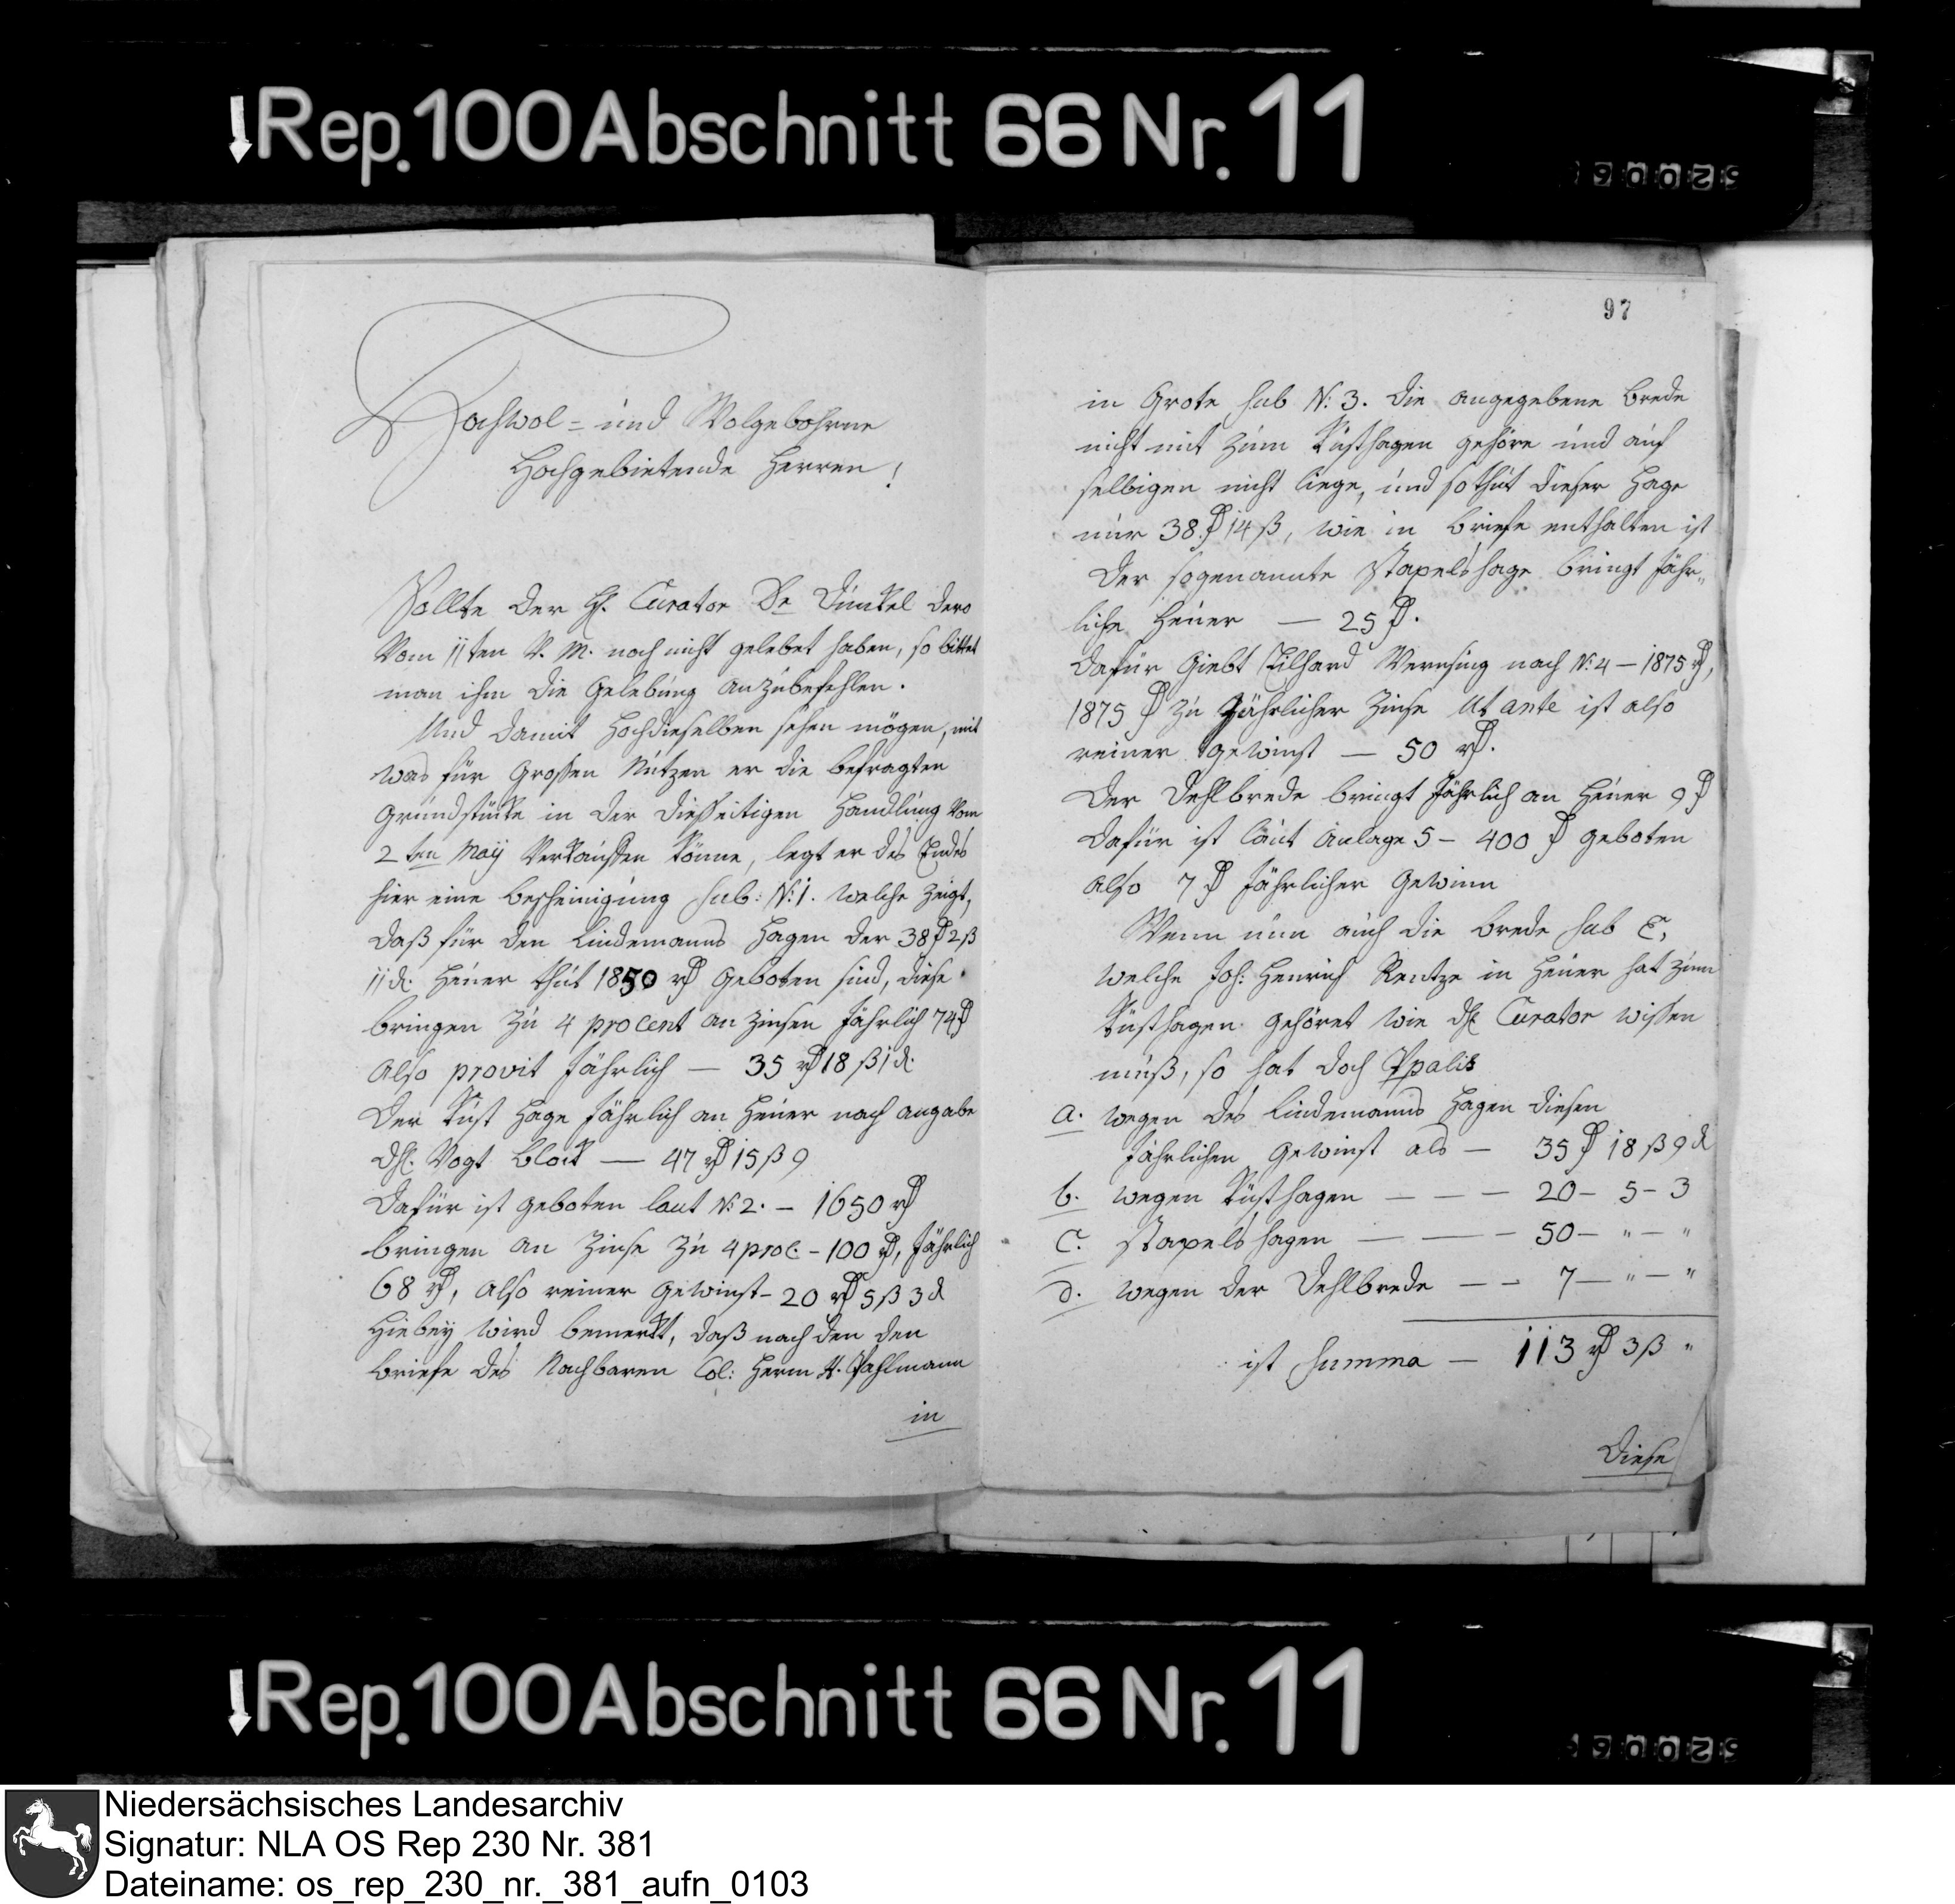 Rep. 100 Abschnitt 66 Nr. 11
Hochwol- und Wolgebohrne
Hochgebietende Herren!
Sollte der H. Curator Dr Dünckel dero
vom 11ten v. M. noch nicht gelebet haben, so bittet
man ihm die Gelebung anzubefehlen.
Und damit Hochdieselben sehen mögen, mit
was für Großen Nutzen er die befragten
Grundstücke in der dießeitigen Handlung vom
2ten May verkauffen könne, legt er des Endes
hier eine Bescheinigung sub: N: 1. welche zeigt,
daß für den Lindemanns Hagen der 38 rt 2 ß
11 d. Heuer thut 1850 rt geboten sind, diese
bringen zu 4 procent an Zinsen jährlich 74 rt
Also provit jährlich — 35 rt 18 ß 1 d.
Der Küst Hage jährlich an Heuer nach angabe
des H. Vogt Block — 47 rt 15 ß 9
Dafür ist geboten laut N: 2. — 1650 rt
bringen an Zinse zu 4 proc. - 100 rt, jährlich
68 rt, also reiner Gewinst - 20 rt 5 ß 3 d
Hiebey wird bemerkt, daß nach den den
Briefe des Nachbaren Col: Herm H. Pahlmann
in
97
in Grote sub N: 3. die angegebene Brede
nicht mit zum Küsthagen gehöre und auf
selbigen nicht liege, und so thut dieser Hage
nur 38 rt 14 ß, wie in Briefe enthalten ist
Der sogenannte Stapelshage bringt Jähr„
liche Heuer — 25 rt.
dafür Giebt Eilhard Wernsing nach N: 4 — 1875 rt,
1875 rt zu Jährlicher Zinse ut ante ist also
reiner Gewinst — 50 rt.
Der Dehlbrede bringt Jährlich an Heuer 9 rt
dafür ist laut Anlage 5 — 400 rt geboten
Also 7 rt Jährlicher Gewinn
Wenn nun auch die Brede sub C,
welche Joh: Henrich Rentze in Heuer hat zum
Küsthagen gehöret wie der H. Curator wissen
muß, so hat doch Ppalis
a. wegen des Lindemanns Hagen diesen
Jährlichen Gewinst als — 35 rt 18 ß 9 d
b. wegen Küsthagen — — — 20 — 5 — 3
c. Stapelshagen — — — 50 — „ — „
d. wegen der Dehlbrede — — 7 — „ — „
ist Summa — 113 rt 3 ß „
Diese
Rep. 100 Abschnitt 66 Nr. 11
Niedersächsisches Landesarchiv
Signatur: NLA OS Rep 230 Nr. 381
Dateiname: os_rep_230_nr._381_aufn_0103